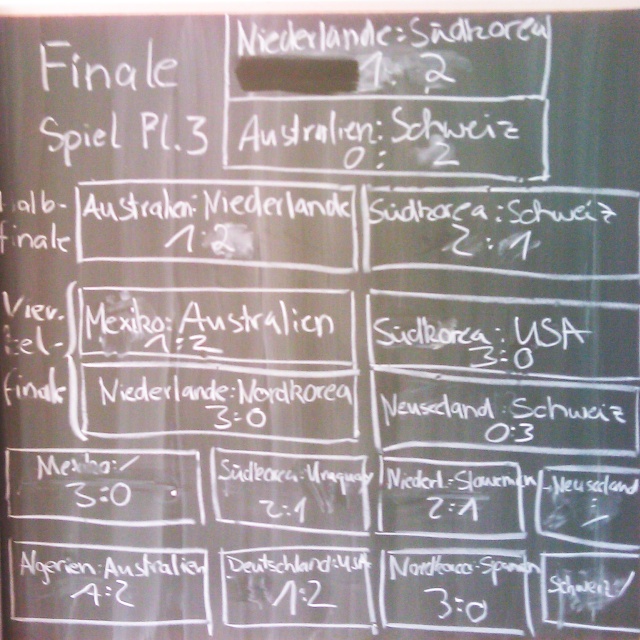 Finale
Niederlande: Südkorea
1: 2
Spiel Pl.3
Australien: Schweiz
0: 2
Halb-
finale
Australien: Niederlande
1:2
Südkorea: Schweiz
2:1
Vier-
tel-
finale
Mexiko: Australien
1:2
Südkorea: USA
3:0
Niederlande: Nordkorea
3:0
Neuseeland: Schweiz
0:3
Mexiko: /
3:0
Südkorea: Uruguay
2:1
Niederl.: Slowenien
2:1
Neuseeland
Algerien: Australien
1:2
Deutschland: USA
1:2
Nordkorea: Spanien
3:0
Schweiz /